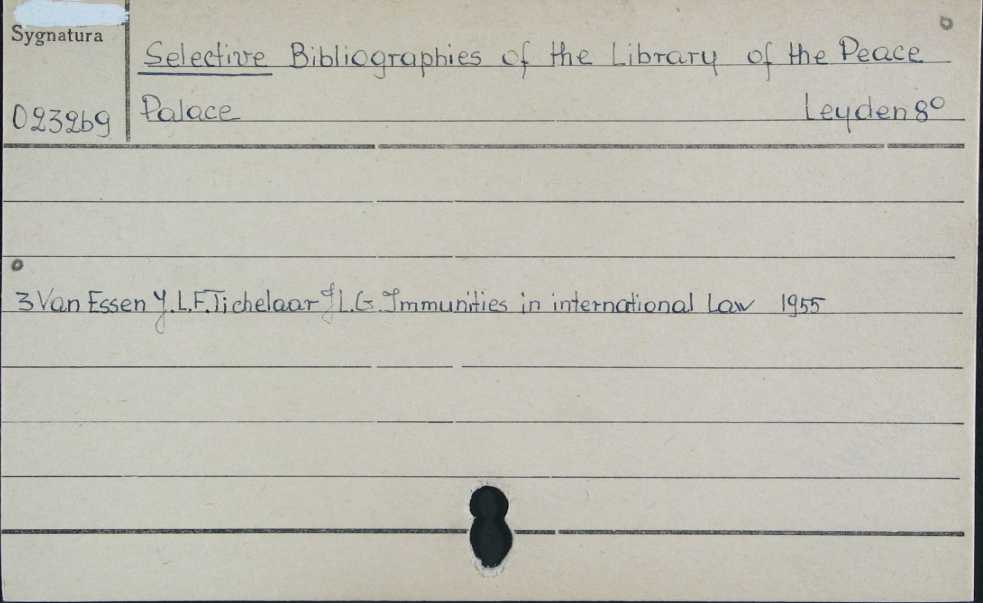 Sygnatura
Selective Bibliographies of the Library of the Peace
023269
Palace Leyden 8°
3 Van Essen J.L.F. Tichelaar J.L.G. Immunities in international Law 1955